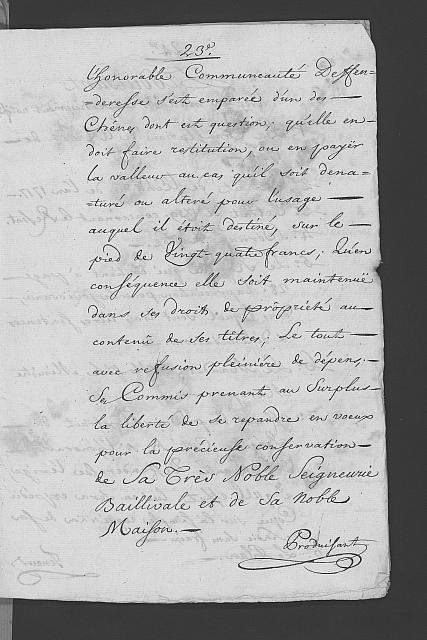 23e.
l'honorable Communeauté Deffen=
=deresse s'est emparée d'un des
Chênes dont est question; qu'elle en
doit faire restitution, ou en payër
la valleur au cas qu'il soit dena=
=turé ou alteré pour l'usage
auquel il étoit destiné, sur le
pied de Vingt-quatre francs; Qu'en
conséquence elle soit maintenuë
dans ses droits de propriété au
contenû de ses tîtres; Le tout
avec refusion pleiniére de dépens;
Sn Commis prenant au Surplus
la liberté de se repandre en voeux
pour la précieuse conservation
de Sa Très Noble Seigneurie
Baillivale et de sa Noble
Maison.
Produisant